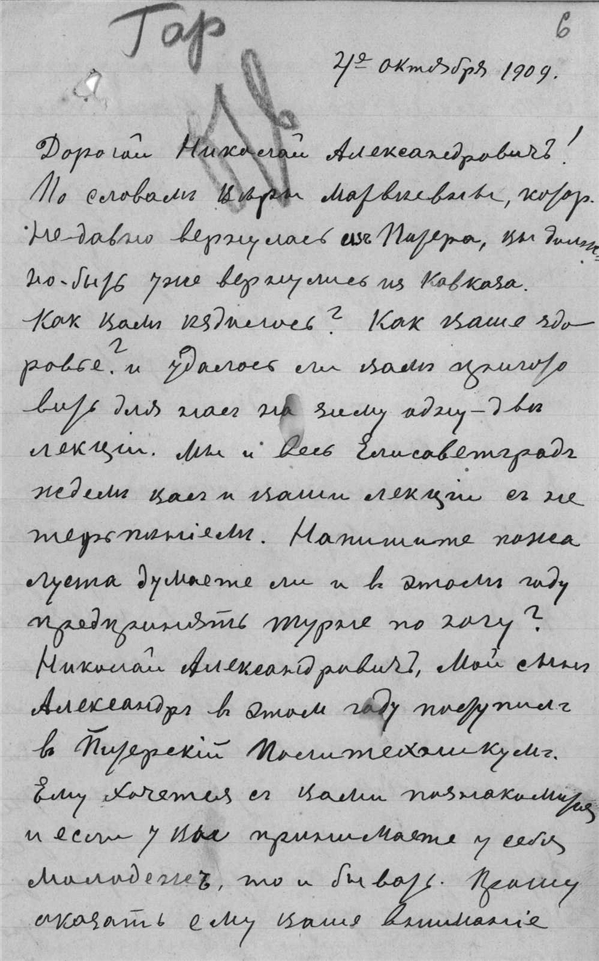 Гар
6
21го октября 1909.
Дорогой Николай Александровичъ!
По словамъ Вѣры Матвѣевны, котор.
недавно вернулась изъ Питера, вы долж
но-быть уже вернулись изъ Кавказа.
Какъ вамъ ѣздилось? Какъ ваше здо
ровье? и удалось ли вамъ пригото
вить для насъ на зиму одну-двѣ
лекціи. Мы и весь Елисаветградъ
ждемъ васъ и ваши лекціи съ не
терпѣніемъ. Напишите пожа
луста думаете ли и в этомъ году
предпринять турне по югу?
Николай Александровичъ, мой сынъ
Александръ в этом году поступилъ
в Питерскій Политехникумъ.
Ему хочется съ вами познакомиться
и если у вы принимаете у себя
молодежь, то и бывать. Прошу
оказать ему ваше вниманіе